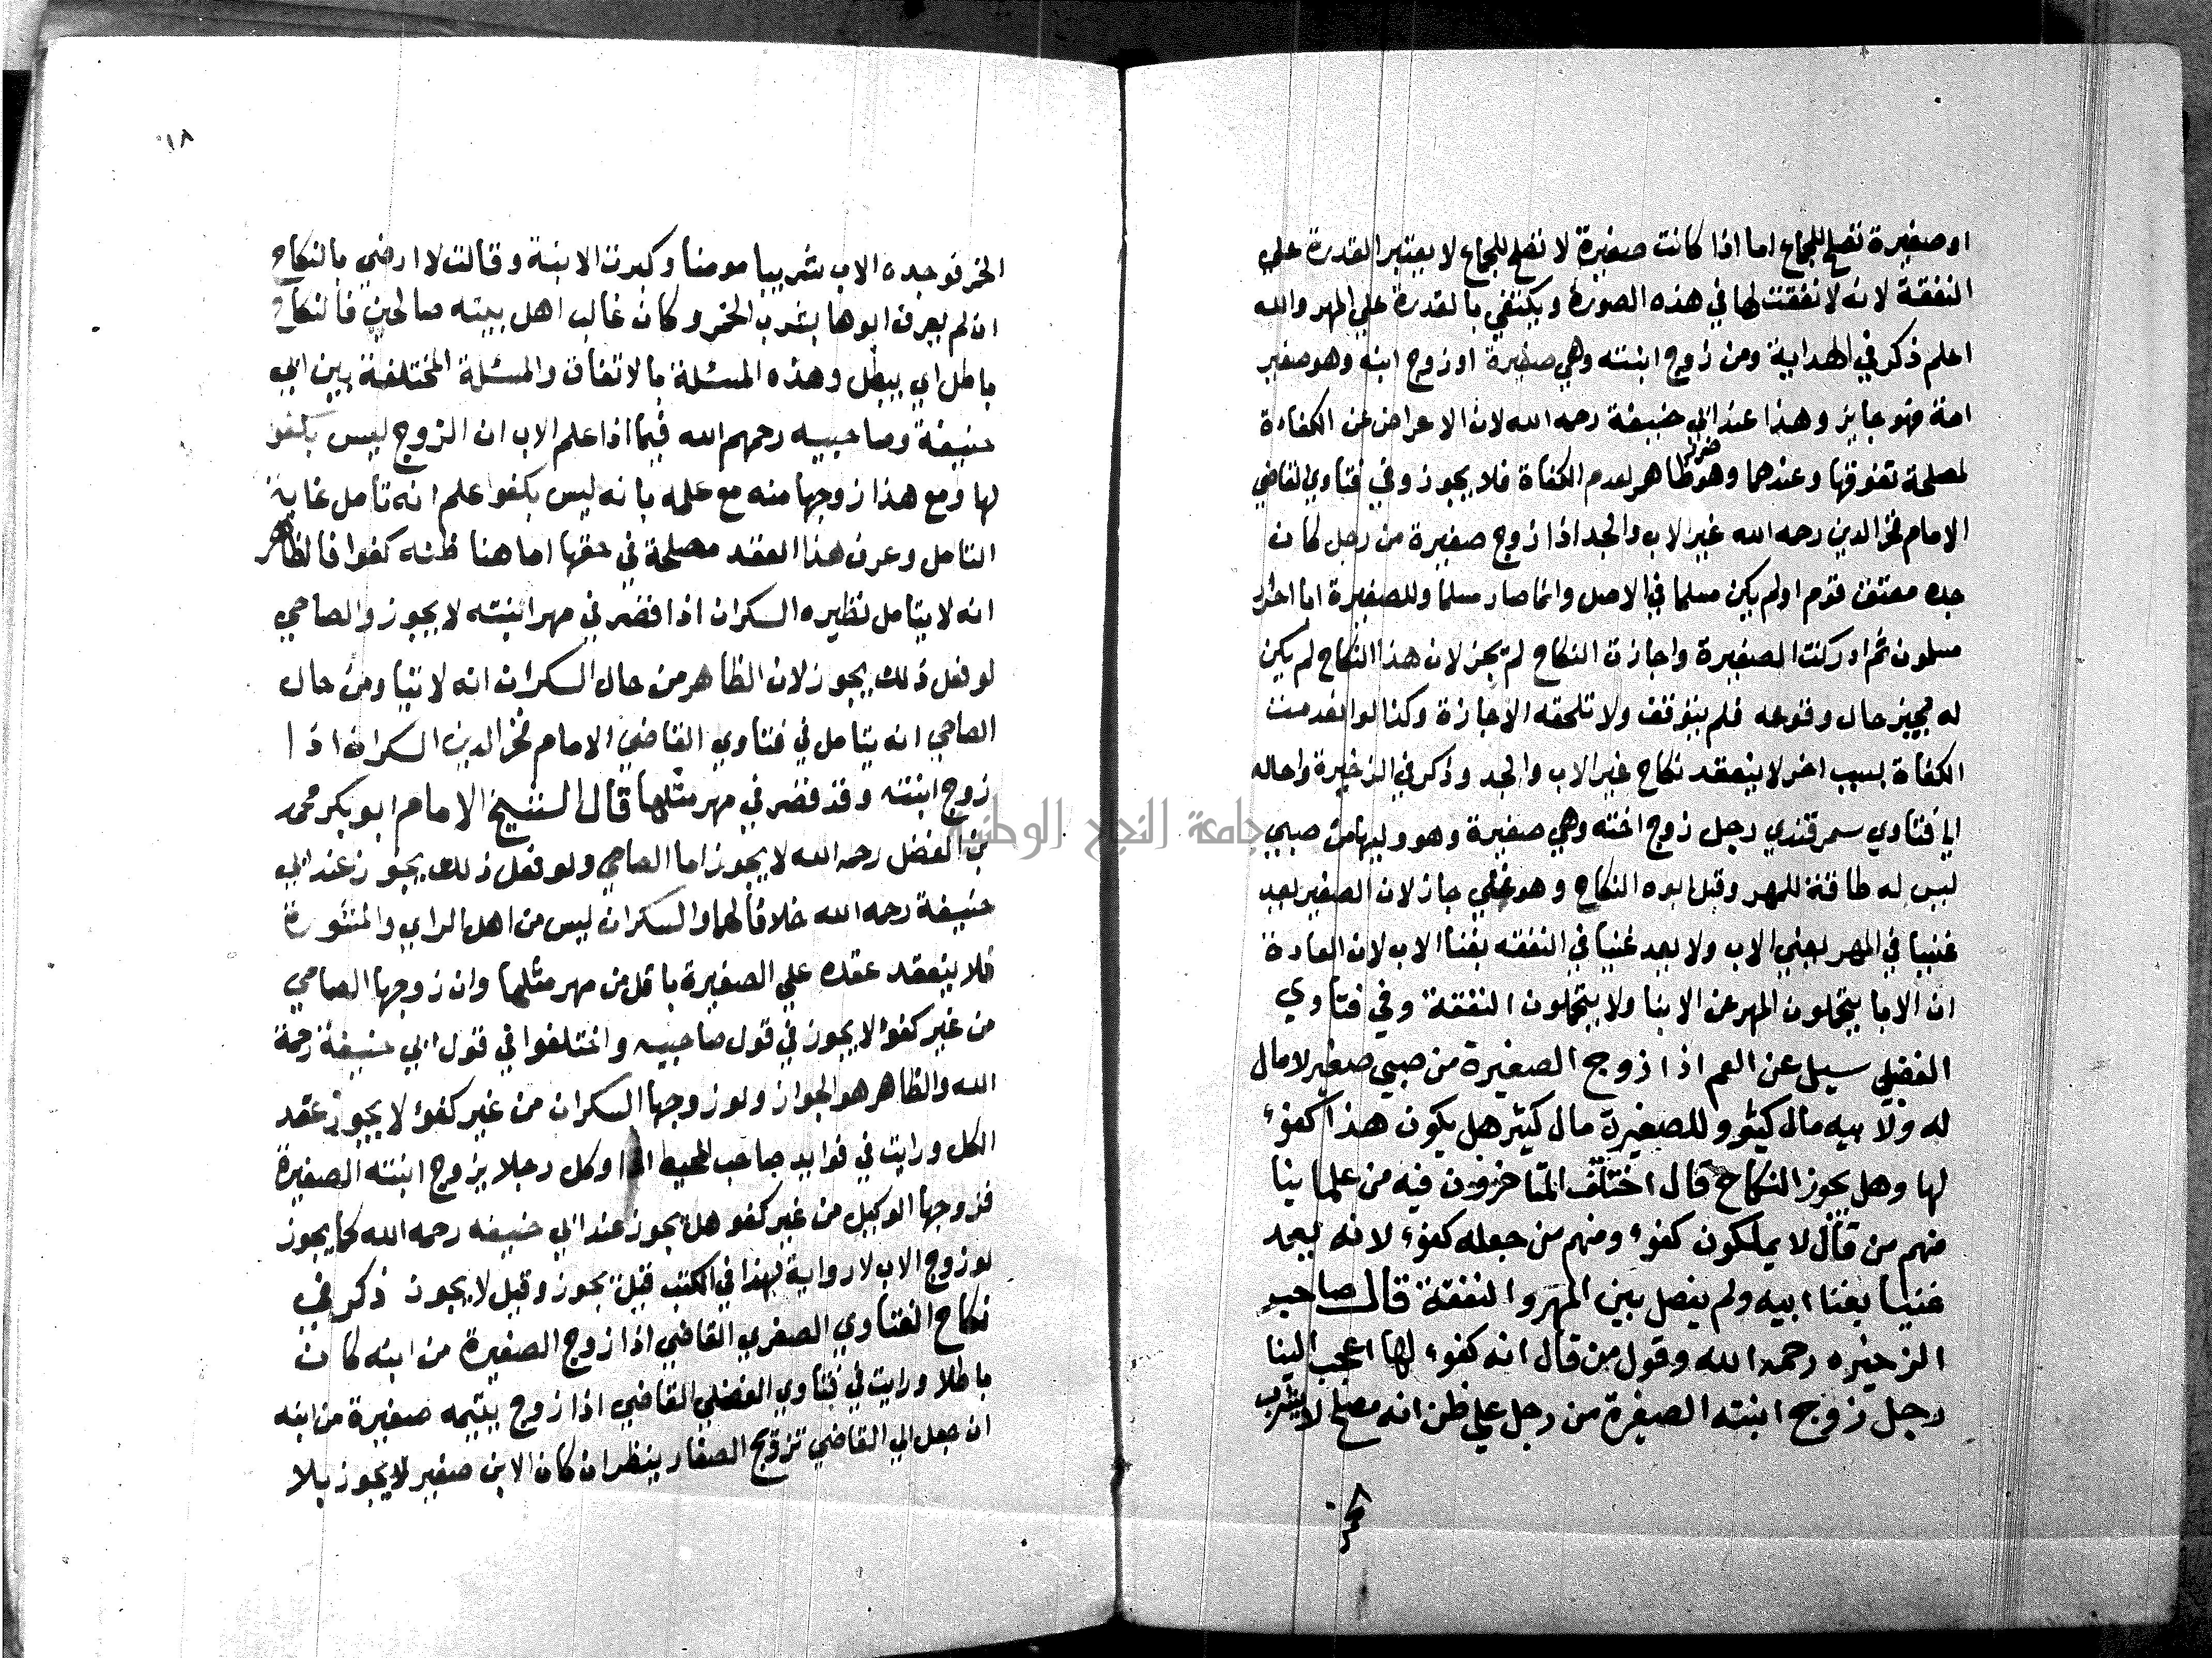 او صغيرة تصلح للجماع اما اذا كانت صغيرة لا تصلح للجماع لا يعتبر القدرة علي
النفقة لانه لا نفقت لها في هذه الصورة ويكتفي بالقدرة علي المهر والله
اعلم ذكر في الهداية ومن زوج ابنته وهي صغيرة او زوج ابنه وهو صغير
امة فهو جايز وهذا عند ابي حنيفة رحمه الله لان الاعراض عن الكفاءة
لمصلحة تفوقها وعندهما وهو ضرر ظاهر لعدم الكفاة فلا يجوز وفي فتاوي القاضي
الامام فخر الدين رحمه الله غير الاب والجد اذا زوج صغيرة من رجل كان
جده معتق قوم او لم يكن مسلما في الاصل وانما صار مسلما وللصغيرة ابا احرار
مسلمون ثم ادركت الصغيرة واجازت النكاح لم يجز لان هذا النكاح لم يكن
له مجيز حال وقوعه فلم يتوقف ولا تلحقه الاجازة وكذا لو انعدمت
الكفاة بسبب اخر لا ينعقد نكاح غير الاب والجد وذكر في الذخيرة واحاله
الي فتاوي سمرقندي رجل زوج اخته وهي صغيرة وهو وليها من صبي
ليس له طاقة للمهر وقبل ابوه النكاح وهو غني جاز لان الصغير يعد
غنيا في المهر بغني الاب ولا يعد غنيا في النفقه بغنا الاب لان العادة
ان الابا يتحملون المهر عن الابنا ولا يتحملون النفقة وفي فتاوي
الفضلي سيل عن العم اذا زوج الصغيرة من صبي صغير لا مال
له ولابيه مال كثير وللصغيرة مال كثير هل يكون هذا كفوء
لها وهل يجوز النكاح قال اختلف المتاخرون فيه من علماينا
منهم من قال لا يملكون كفوء ومنهم من جعله كفوء لانه يعد
غنيا بغنا ابيه ولم يفصل بين المهر والنفقة قال صاحب
الزخيره رحمه الله وقول من قال انه كفوء لها اعجب الينا
رجل زوج ابنته الصغرة من رجل علي ظن انه مصلح لا يشرب
الخمر
١٨
الخمر فوجده الاب شريبا مومنا وكبرت الابنة وقالت لا ارضي بالنكاح
ان لم يعرف ابوها بشرب الخمر وكان غالب اهل بيته صالحين فالنكاح
باطل اي يبطل وهذه المسئلة بالاتفاق والمسئلة المختلفة بين ابي
حنيفة وصاحبيه رحمهم الله فيما اذا علم الاب ان الزوج ليس بكفو
لها ومع هذا زوجها منه مع علمه بانه ليس بكفوا علم انه تامل غاية
التامل وعرف هذا العقد مصلحة في حقها اما هنا ظنه كفوا فالظاهر
انه لا يتامل نظيره السكران اذا قصر في مهر ابنته لا يجوز والصاحي
لو فعل ذلك يجوز لان الظاهر من حال السكران انه لا يتامل ومن حال
الصاحي انه يتامل في فتاوي القاضي الامام فخر الدين السكران اذا
زوج ابنته وقد قصر في مهر مثلها قال الشيخ الامام ابو بكر محمد
بن الفضل رحمه الله لا يجوز اما الصاحي ولو فعل ذلك يجوز عند ابي
حنيفة رحمه الله خلافا لهما والسكران ليس من اهل الراي والمشورة
فلا ينعقد عقده علي الصغيرة باقل من مهر مثلها وان زوجها الصاحي
من غير كفؤ لا يجوز في قول صاحبيه واختلفوا في قول ابي حنيفة رحمة
الله والظاهر هو الجواز ولو زوجها السكران من غير كفؤ لا يجوز عقد
الكل ورايت في فوايد صاحب المحيط اذا وكل رجلا يزوج ابنته الصغيرة
فزوجها الوكيل من غير كفو هل يجوز عند ابي حنيفه رحمه الله كما يجوز
لو زوج الاب لا رواية لهذا في الكتب قيل يجوز وقيل لا يجوز ذكر في
نكاح الفتاوي الصغري القاضي اذا زوج الصغيرة من ابنه كان
باطلا ورايت في فتاوي الفضلي القاضي اذا زوج يتيمه صغيرة من ابنه
ان جعل الي القاضي تزويج الصغار ينظر ان كان الابن صغير لا يجوز بلا
جامعة النجاح الوطنية